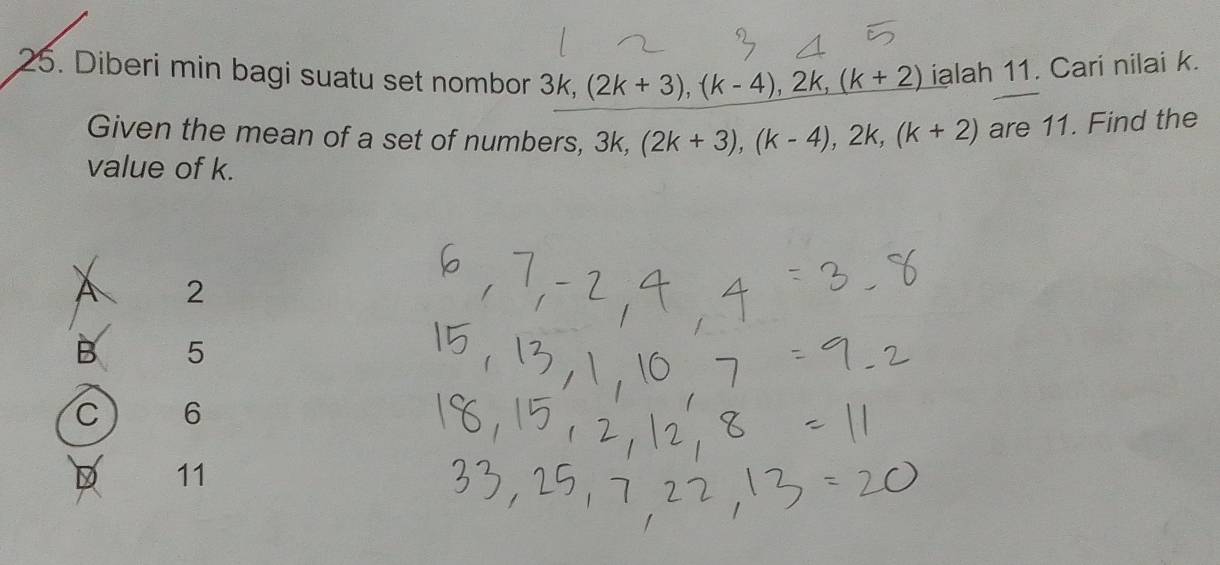 1 2 3 4 5
25. Diberi min bagi suatu set nombor 3k, (2k + 3), (k - 4), 2k, (k + 2) ialah 11. Cari nilai k.
Given the mean of a set of numbers, 3k, (2k + 3), (k - 4), 2k, (k + 2) are 11. Find the
value of k.
A 2
6, 7, -2, 4, 4 = 3.8
B 5
15, 13, 1, 10, 7 = 9.2
C 6
18, 15, 2, 12, 8 = 11
D 11
33, 25, 7, 22, 13 = 20